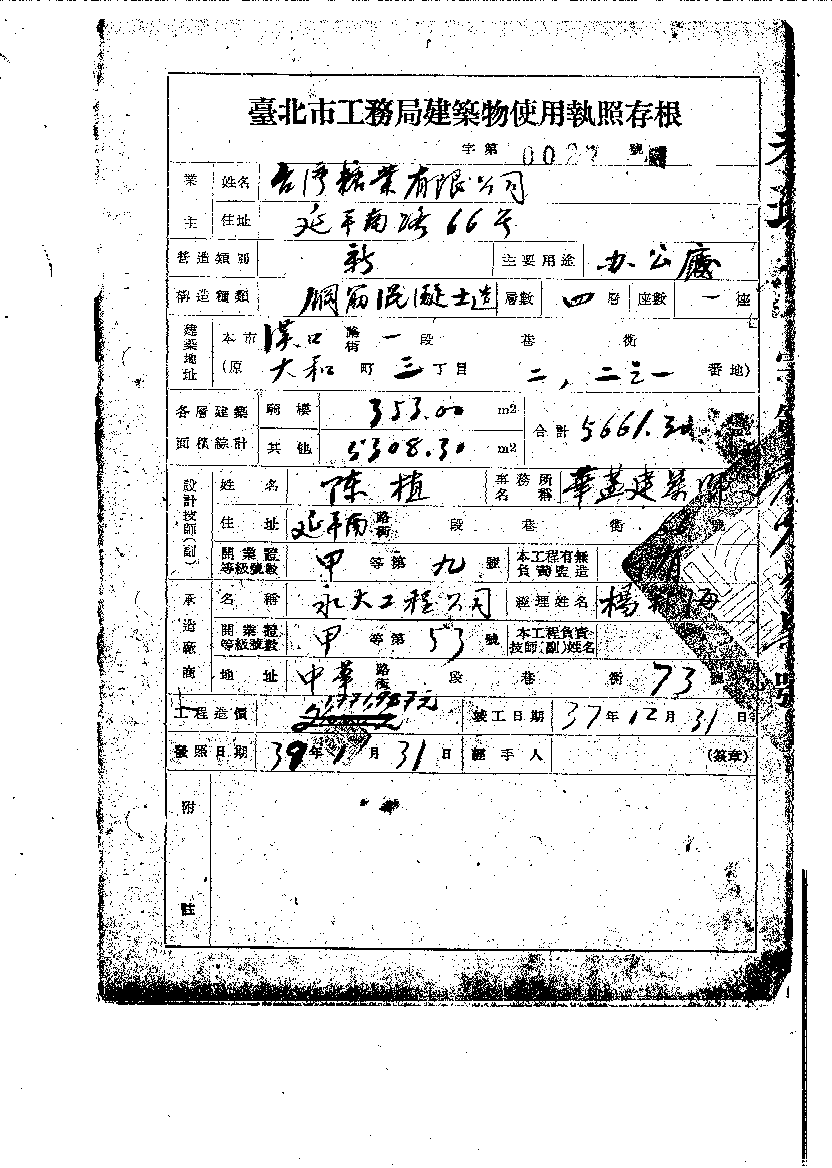 臺北市工務局建築物使用執照存根
字第 0027 號
業主 姓名 台湾糖業有限公司
住址 延平南路66号
營造類別 新 主要用途 办公廳
構造種類 鋼筋混凝土造 層數 四層 座數 一座
建築地址 本市 漢口 路街 一段 巷 衖
(原 大和 町 三丁目 二,二之一 番地)
各層建築面積綜計 騎樓 353.00 m2
其他 5308.30 m2 合計 5661.30
設計技師(副) 姓名 陈植 事務所名稱 華蓋建築師
住址 延平南 路街 段 巷 衖 號
開業證等級號數 甲等第九號 本工程有無負責監造 有
承造廠商 名稱 永大工程公司 經理姓名 楊
開業證等級號數 甲等第53號 本工程負責技師(副)姓名
地址 中華 路街 段 巷 衖 73號
工程造價 竣工日期 37年12月31日
發照日期 39年1月31日 經手人 (簽章)
附註